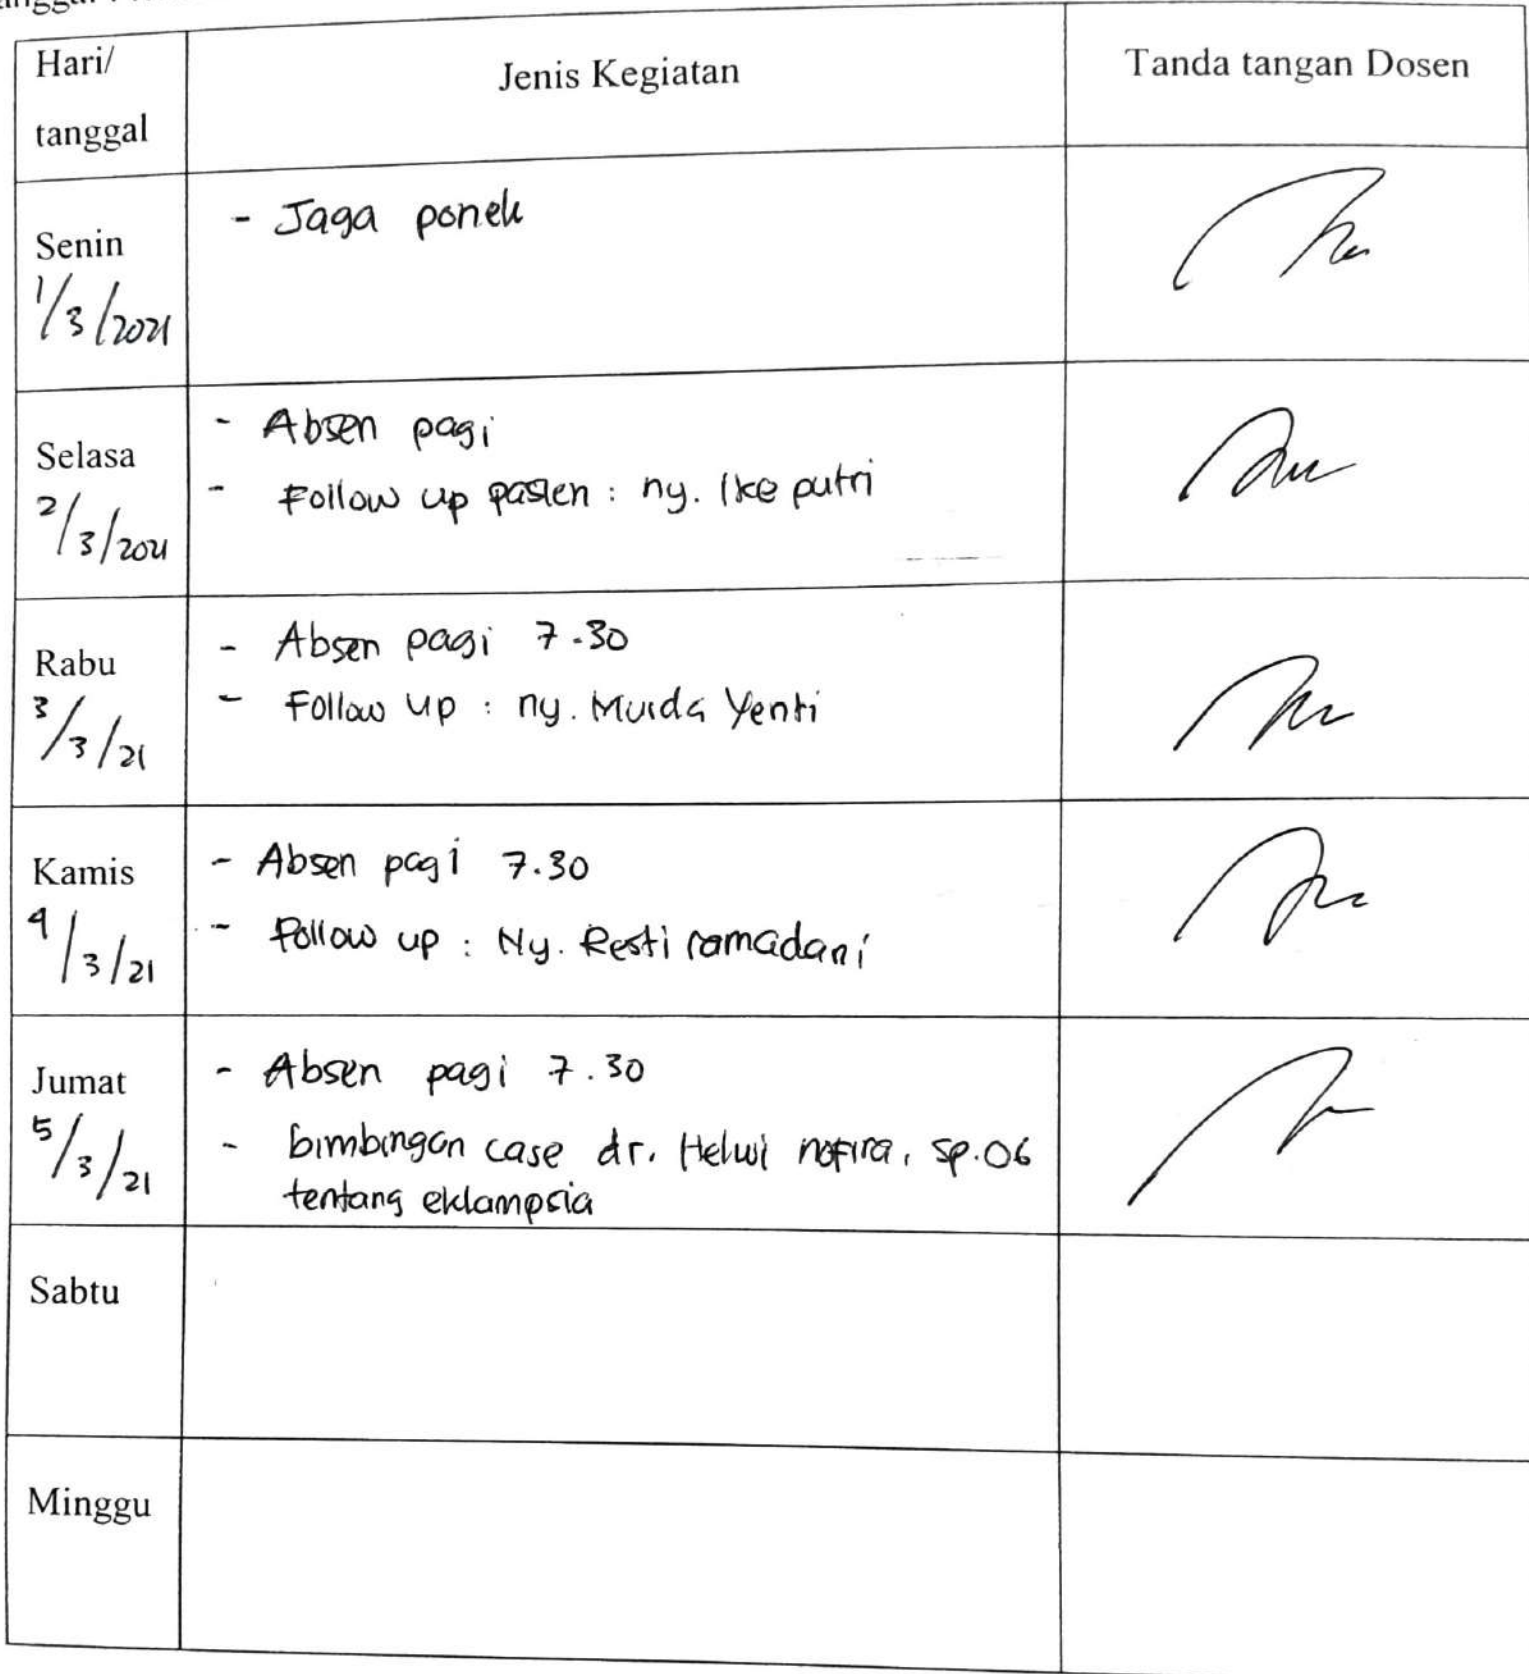 Hari/ tanggal
Jenis Kegiatan
Tanda tangan Dosen
Senin
1/3/2021
- Jaga ponek
Selasa
2/3/2021
- Absen pagi
- Follow up pasien : ny. Ike putri
Rabu
3/3/21
- Absen pagi 7.30
- Follow up : ny. Murda Yenti
Kamis
4/3/21
- Absen pagi 7.30
- Follow up : Ny. Resti ramadani
Jumat
5/3/21
- Absen pagi 7.30
- bimbingan case dr. Helwi nofira, sp.OG
tentang eklampsia
Sabtu
Minggu